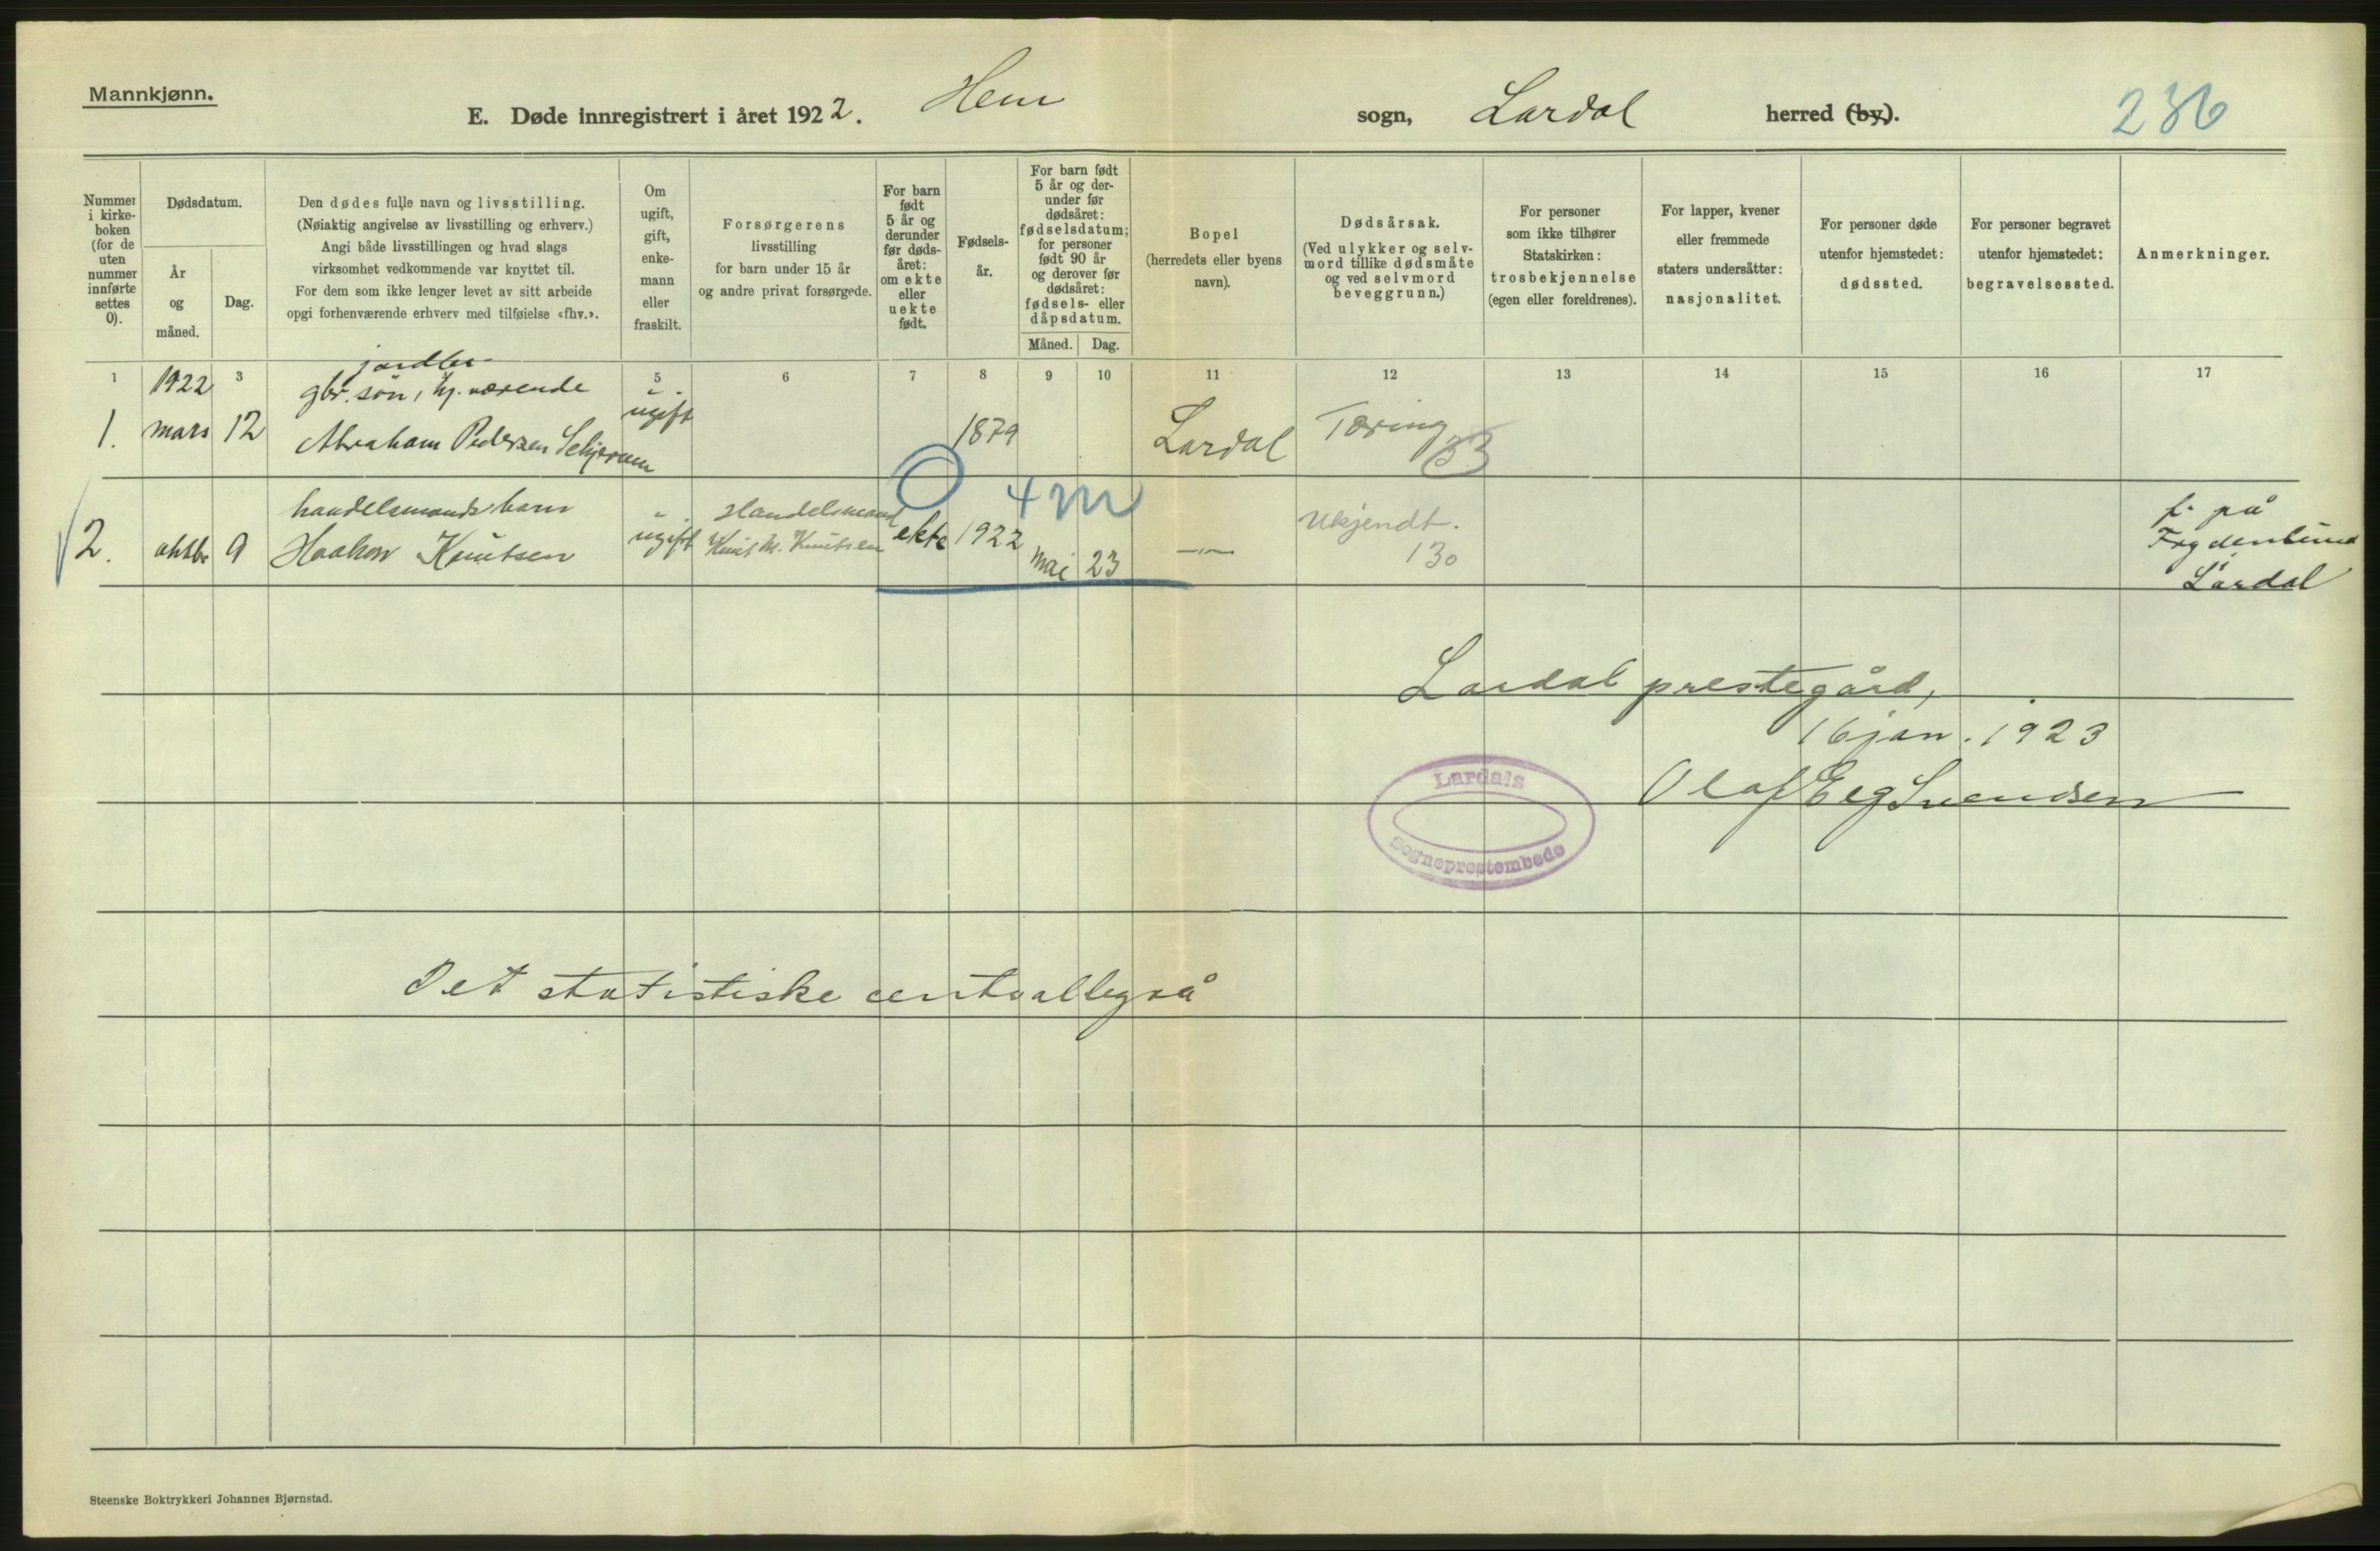 Mannkjønn.
E. Døde innregistrert i året 1922. Hem sogn, Lardal herred (by).
236
Nummer i kirke- boken (for de uten nummer innførte settes 0).
Dødsdatum.
År og måned.
Dag.
Den dødes fulle navn og livsstilling.
(Nøiaktig angivelse av livsstilling og erhverv.)
Angi både livsstillingen og hvad slags
virksomhet vedkommende var knyttet til.
For dem som ikke lenger levet av sitt arbeide
opgi forhenværende erhverv med tilføielse «fhv.».
Om ugift, gift, enke- mann eller fraskilt.
Forsørgerens
livsstilling
for barn under 15 år
og andre privat forsørgede.
For barn født 5 år og derunder før døds- året: om ekte eller uekte født.
Fødsels- år.
For barn født 5 år og der- under før dødsåret: fødselsdatum; for personer født 90 år og derover før dødsåret: fødsels- eller dåpsdatum.
Måned. Dag.
Bopel
(herredets eller byens
navn).
Dødsårsak.
(Ved ulykker og selv-
mord tillike dødsmåte
og ved selvmord
beveggrunn.)
For personer
som ikke tilhører
Statskirken:
trosbekjennelse
(egen eller foreldrenes).
For lapper, kvener
eller fremmede
staters undersåtter:
nasjonalitet.
For personer døde
utenfor hjemstedet:
dødssted.
For personer begravet
utenfor hjemstedet:
begravelsessted.
Anmerkninger.
1 3 5 6 7 8 9 10 11 12 13 14 15 16 17
1922
jordbr
gbr. søn, hj. værende
1. mars 12 Abraham Pedersen ugift 1879 Lardal Tæring
33
4 m
handelsmands barn
2. oktbr 9 Haakon Knutsen ugift Handelsmand
Knut M. Knutsen ekte 1922 mai 23 —„— Ukjendt.
130
f. på
Frydenlund
i
Lardal
Lardal prestegård,
16 jan. 1923
Olaf Eeg Svendsen
Lardals
Sogneprestembede
Det statistiske centralbyrå
Steenske Boktrykkeri Johannes Bjørnstad.